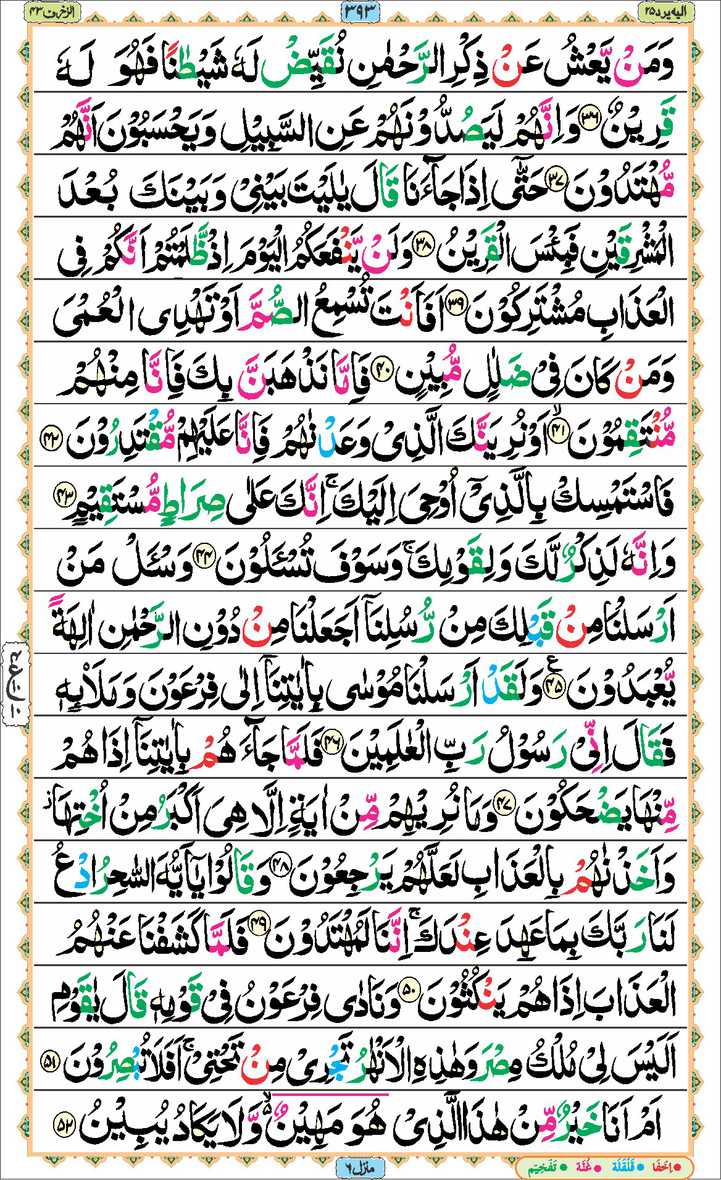 الیه یرد ۲۵
۳۹۳
الزخرف ۴۳
وَمَنْ یَّعْشُ عَنْ ذِكْرِ الرَّحْمٰنِ نُقَیِّضْ لَهٗ شَیْطٰنًا فَهُوَ لَهٗ
قَرِیْنٌ ﴿۳۶﴾ وَاِنَّهُمْ لَیَصُدُّوْنَهُمْ عَنِ السَّبِیْلِ وَیَحْسَبُوْنَ اَنَّهُمْ
مُّهْتَدُوْنَ ﴿۳۷﴾ حَتّٰۤی اِذَا جَآءَنَا قَالَ یٰلَیْتَ بَیْنِیْ وَبَیْنَكَ بُعْدَ
الْمَشْرِقَیْنِ فَبِئْسَ الْقَرِیْنُ ﴿۳۸﴾ وَلَنْ یَّنْفَعَكُمُ الْیَوْمَ اِذْ ظَّلَمْتُمْ اَنَّكُمْ فِی
الْعَذَابِ مُشْتَرِكُوْنَ ﴿۳۹﴾ اَفَاَنْتَ تُسْمِعُ الصُّمَّ اَوْ تَهْدِی الْعُمْیَ
وَمَنْ كَانَ فِیْ ضَلٰلٍ مُّبِیْنٍ ﴿۴۰﴾ فَاِمَّا نَذْهَبَنَّ بِكَ فَاِنَّا مِنْهُمْ
مُّنْتَقِمُوْنَ ﴿۴۱﴾ۙ اَوْ نُرِیَنَّكَ الَّذِیْ وَعَدْنٰهُمْ فَاِنَّا عَلَیْهِمْ مُّقْتَدِرُوْنَ ﴿۴۲﴾
فَاسْتَمْسِكْ بِالَّذِیْۤ اُوْحِیَ اِلَیْكَ ۚ اِنَّكَ عَلٰی صِرَاطٍ مُّسْتَقِیْمٍ ﴿۴۳﴾
وَاِنَّهٗ لَذِكْرٌ لَّكَ وَلِقَوْمِكَ ۚ وَسَوْفَ تُسْـَٔلُوْنَ ﴿۴۴﴾ وَسْـَٔلْ مَنْ
اَرْسَلْنَا مِنْ قَبْلِكَ مِنْ رُّسُلِنَاۤ اَجَعَلْنَا مِنْ دُوْنِ الرَّحْمٰنِ اٰلِهَةً
یُّعْبَدُوْنَ ﴿۴۵﴾ع وَلَقَدْ اَرْسَلْنَا مُوْسٰی بِاٰیٰتِنَاۤ اِلٰی فِرْعَوْنَ وَمَلَا۟ىِٕهٖ
فَقَالَ اِنِّیْ رَسُوْلُ رَبِّ الْعٰلَمِیْنَ ﴿۴۶﴾ فَلَمَّا جَآءَهُمْ بِاٰیٰتِنَاۤ اِذَا هُمْ
مِّنْهَا یَضْحَكُوْنَ ﴿۴۷﴾ وَمَا نُرِیْهِمْ مِّنْ اٰیَةٍ اِلَّا هِیَ اَكْبَرُ مِنْ اُخْتِهَا ز
وَاَخَذْنٰهُمْ بِالْعَذَابِ لَعَلَّهُمْ یَرْجِعُوْنَ ﴿۴۸﴾ وَقَالُوْا یٰۤاَیُّهَ السّٰحِرُ ادْعُ
لَنَا رَبَّكَ بِمَا عَهِدَ عِنْدَكَ ۚ اِنَّنَا لَمُهْتَدُوْنَ ﴿۴۹﴾ فَلَمَّا كَشَفْنَا عَنْهُمُ
الْعَذَابَ اِذَا هُمْ یَنْكُثُوْنَ ﴿۵۰﴾ وَنَادٰی فِرْعَوْنُ فِیْ قَوْمِهٖ قَالَ یٰقَوْمِ
اَلَیْسَ لِیْ مُلْكُ مِصْرَ وَهٰذِهِ الْاَنْهٰرُ تَجْرِیْ مِنْ تَحْتِیْ ۚ اَفَلَا تُبْصِرُوْنَ ﴿۵۱﴾
اَمْ اَنَا خَیْرٌ مِّنْ هٰذَا الَّذِیْ هُوَ مَهِیْنٌ ۙ وَّلَا یَكَادُ یُبِیْنُ ﴿۵۲﴾
منزل ۶
اخفا • قلقلة • غنة • تفخیم